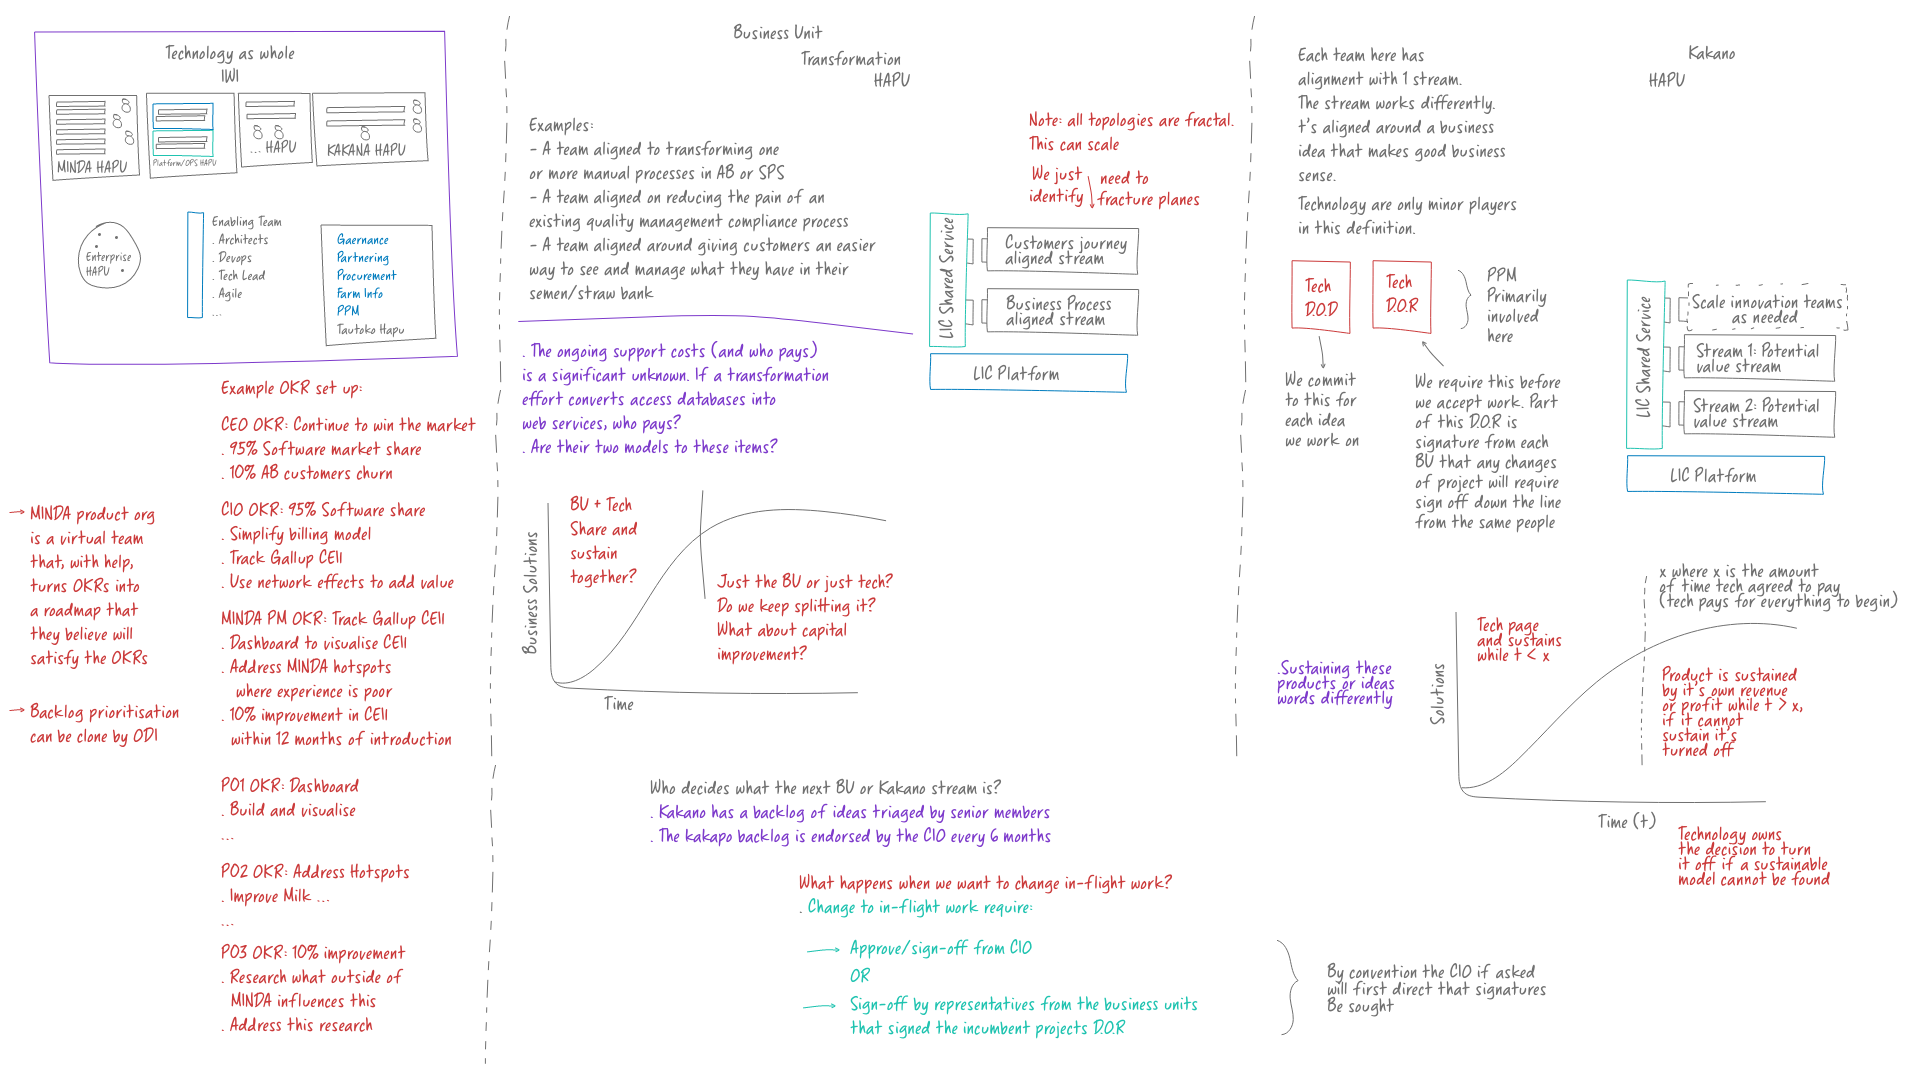 Technology as whole
IWI
MINDA HAPU
Platform/OPS HAPU
... HAPU
KAKANA HAPU
Enterprise
HAPU
Enabling Team
. Architects
. Devops
. Tech Lead
. Agile
...
Gaernance
Partnering
Procurement
Farm Info
PPM
Tautoko Hapu
Example OKR set up:
CEO OKR: Continue to win the market
. 95% Software market share
. 10% AB customers churn
CIO OKR: 95% Software share
. Simplify billing model
. Track Gallup CEll
. Use network effects to add value
MINDA PM OKR: Track Gallup CEll
. Dashboard to visualise CEll
. Address MINDA hotspots
where experience is poor
. 10% improvement in CEll
within 12 months of introduction
PO1 OKR: Dashboard
. Build and visualise
...
PO2 OKR: Address Hotspots
. Improve Milk ...
...
PO3 OKR: 10% improvement
. Research what outside of
MINDA influences this
. Address this research
→ MINDA product org
is a virtual team
that, with help,
turns OKRs into
a roadmap that
they believe will
satisfy the OKRs
→ Backlog prioritisation
can be clone by ODI
Business Unit
Transformation
HAPU
Examples:
- A team aligned to transforming one
or more manual processes in AB or SPS
- A team aligned on reducing the pain of an
existing quality management compliance process
- A team aligned around giving customers an easier
way to see and manage what they have in their
semen/straw bank
Note: all topologies are fractal.
This can scale
We just need to
identify fracture planes
LIC Shared Service
Customers journey
aligned stream
Business Process
aligned stream
LIC Platform
. The ongoing support costs (and who pays)
is a significant unknown. If a transformation
effort converts access databases into
web services, who pays?
. Are their two models to these items?
Business Solutions
BU + Tech
Share and
sustain
together?
Just the BU or just tech?
Do we keep splitting it?
What about capital
improvement?
Time
Who decides what the next BU or Kakano stream is?
. Kakano has a backlog of ideas triaged by senior members
. The kakapo backlog is endorsed by the CIO every 6 months
What happens when we want to change in-flight work?
. Change to in-flight work require:
→ Approve/sign-off from CIO
OR
→ Sign-off by representatives from the business units
that signed the incumbent projects D.O.R
By convention the CIO if asked
will first direct that signatures
Be sought
Kakano
HAPU
Each team here has
alignment with 1 stream.
The stream works differently.
t's aligned around a business
idea that makes good business
sense.
Technology are only minor players
in this definition.
Tech
D.O.D
Tech
D.O.R
PPM
Primarily
involved
here
We commit
to this for
each idea
we work on
We require this before
we accept work. Part
of this D.O.R is
signature from each
BU that any changes
of project will require
sign off down the line
from the same people
LIC Shared Service
Scale innovation teams
as needed
Stream 1: Potential
value stream
Stream 2: Potential
value stream
LIC Platform
x where x is the amount
of time tech agreed to pay
(tech pays for everything to begin)
.Sustaining these
products or ideas
words differently
Solutions
Tech page
and sustains
while t < x
Product is sustained
by it's own revenue
or profit while t > x,
if it cannot
sustain it's
turned off
Time (t)
Technology owns
the decision to turn
it off if a sustainable
model cannot be found